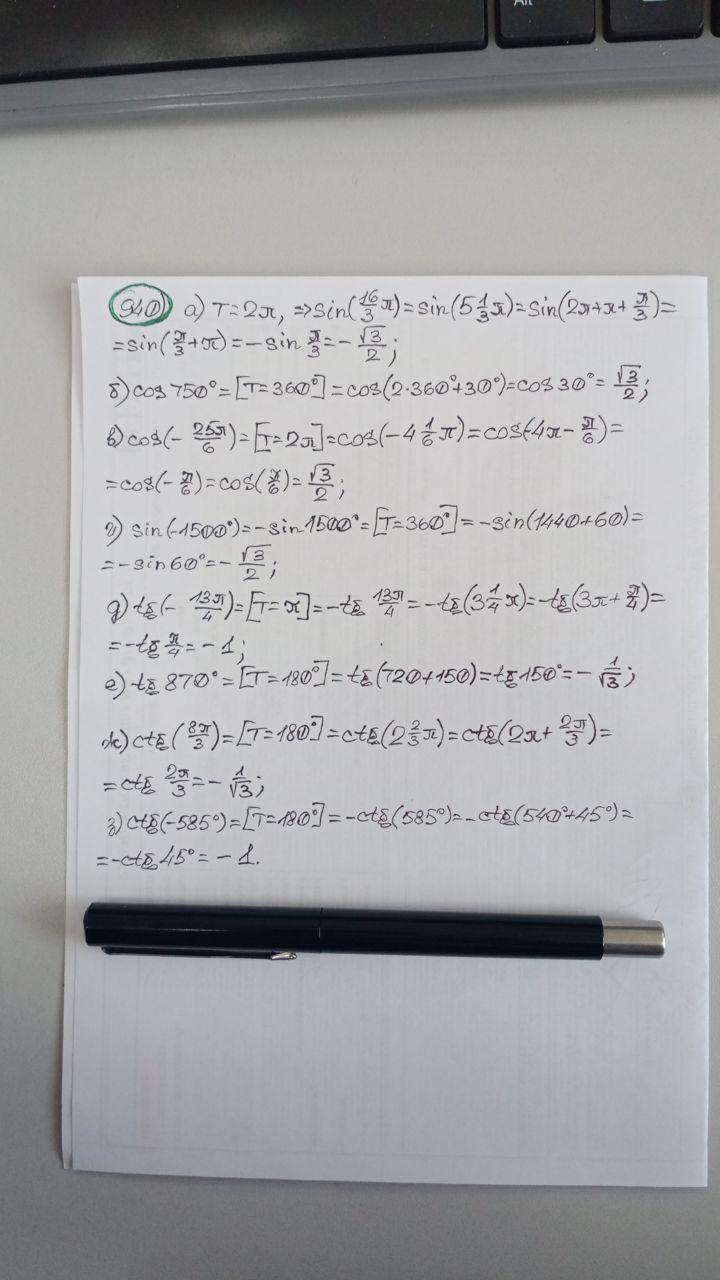 Alt
940) а) T=2π, ⇒ sin(16/3 π)=sin(5 1/3 π)=sin(2π+π+π/3)=
=sin(π/3+π)=-sin π/3=-√3/2;
б) cos 750°=[T=360°]=cos(2·360°+30°)=cos 30°=√3/2;
в) cos(-25π/6)=[T=2π]=cos(-4 1/6 π)=cos(-4π-π/6)=
=cos(-π/6)=cos(π/6)=√3/2;
г) sin(-1500°)=-sin 1500°=[T=360°]=-sin(1440+60)=
=-sin 60°=-√3/2;
д) tg(-13π/4)=[T=π]=-tg 13π/4=-tg(3 1/4 π)=-tg(3π+π/4)=
=-tg π/4=-1;
е) tg 870°=[T=180°]=tg(720+150)=tg 150°=-1/√3;
ж) ctg(8π/3)=[T=180°]=ctg(2 2/3 π)=ctg(2π+2π/3)=
=ctg 2π/3=-1/√3;
з) ctg(-585°)=[T=180°]=-ctg(585°)=-ctg(540°+45°)=
=-ctg 45°=-1.